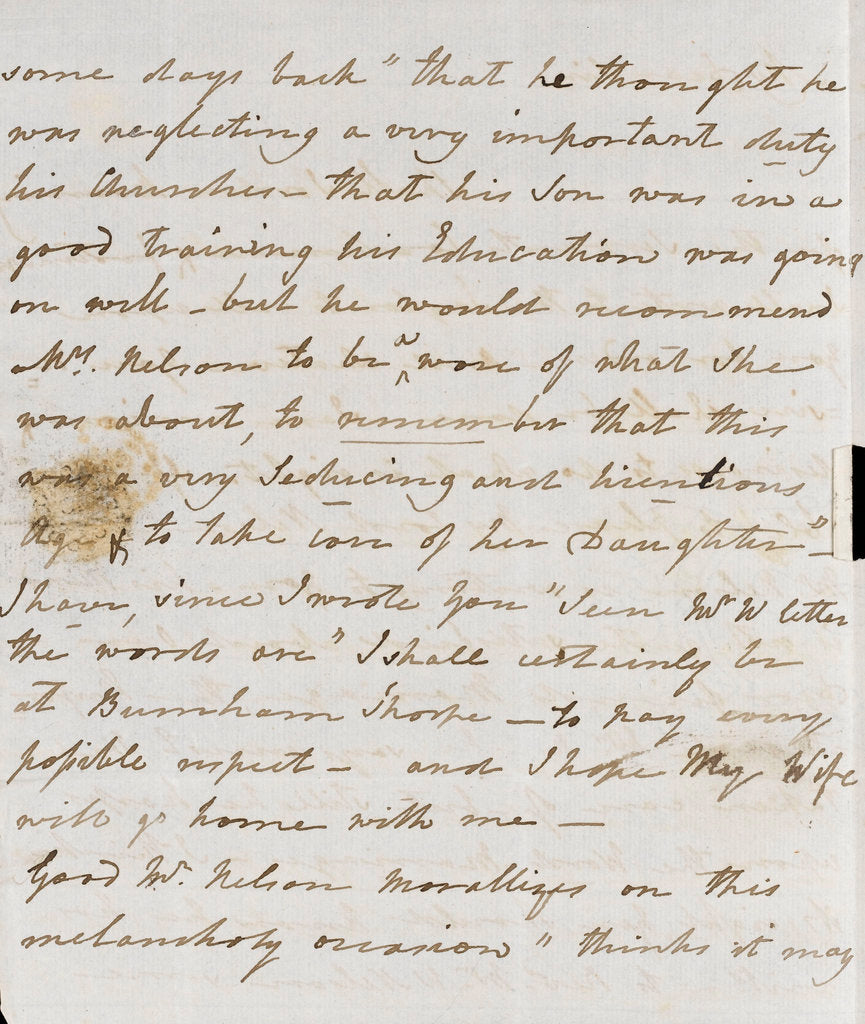 some days back " that he thought he
was neglecting a very important duty
his Churches - that his Son was in a
good training his Education was going
on well - but he would recommend
Mrs. Nelson to be ^a ware of what She
was about, to remember that this
was a very Seducing and licentious
Age & to take care of her Daughter" -
I have, since I wrote you "Seen Mr W letter
the words are " I shall certainly be
at Burnham Thorpe - to pay every
possible respect - and I hope My Wife
will go home with me -
Good Mr. Nelson Morallizes on this
melancholy occasion " thinks it may